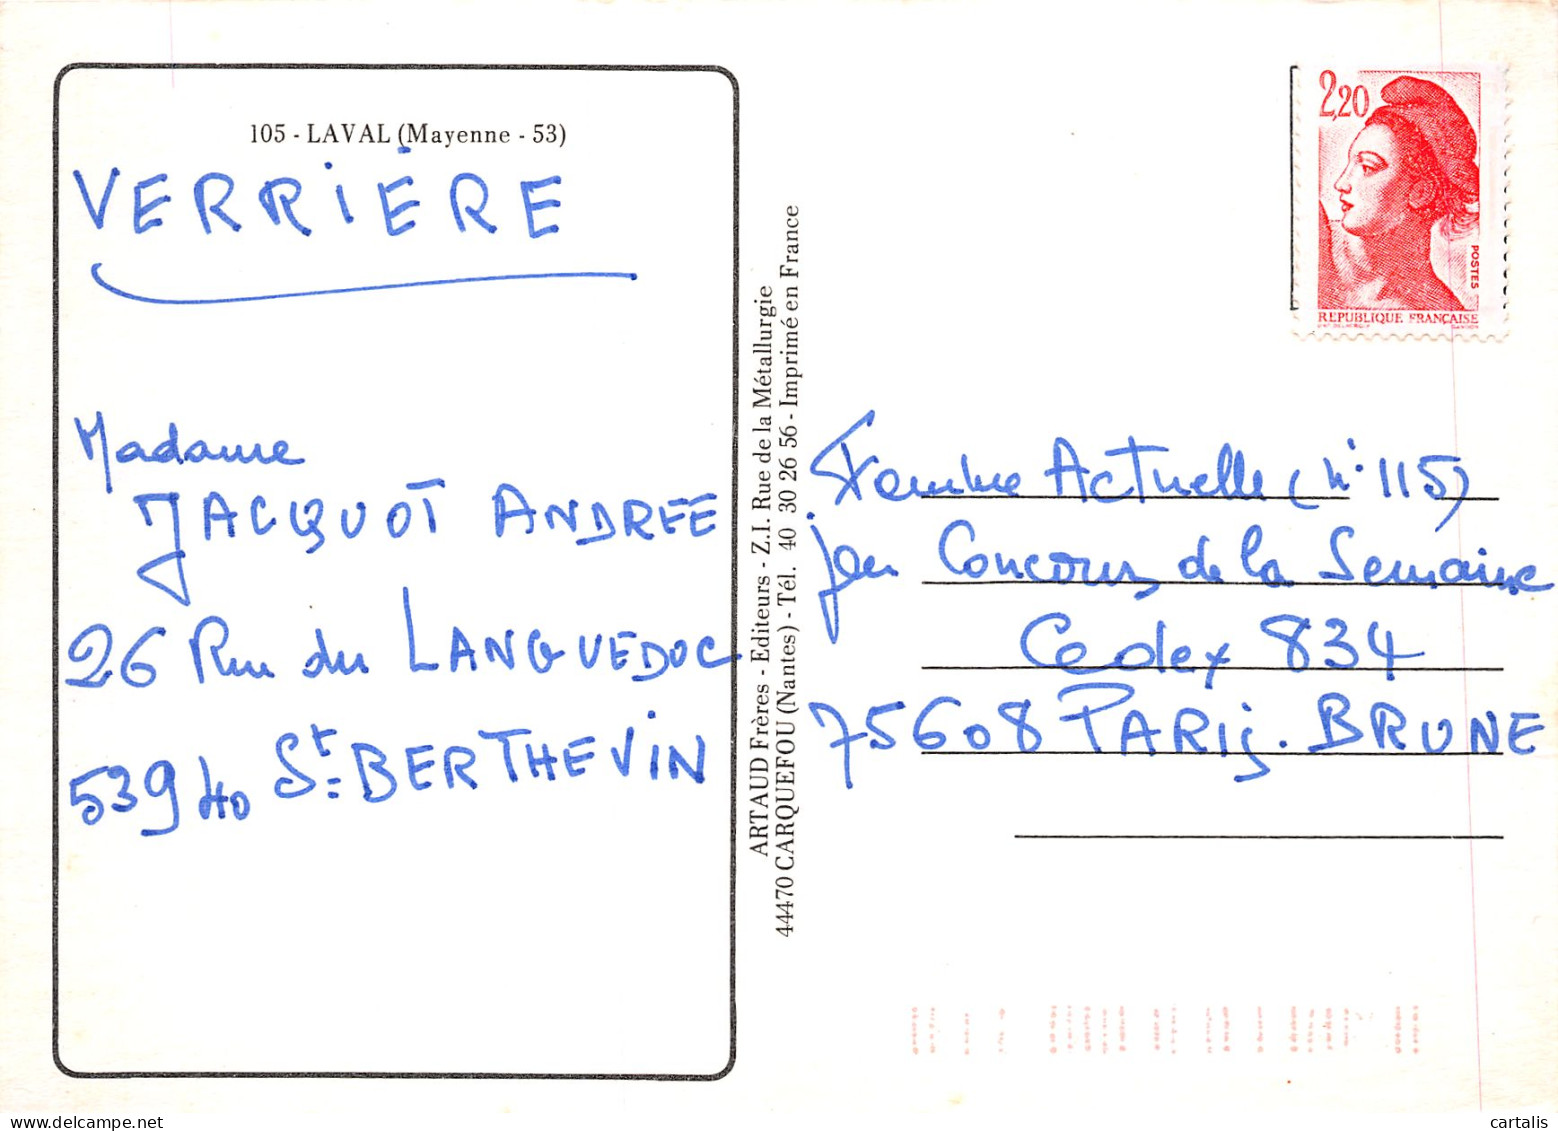 105 - LAVAL (Mayenne - 53)
VERRIÈRE
Madame
JACQUOT ANDREE
26 Rue du LANGUEDOC
53940 St-BERTHEVIN
ARTAUD Frères - Editeurs - Z.I. Rue de la Métallurgie
44470 CARQUEFOU (Nantes) - Tél. 40 30 26 56 - Imprimé en France
2,20
POSTES
REPUBLIQUE FRANÇAISE
Femme Actuelle (n° 115)
jeu Concours de la Semaine
Cedex 834
75608 PARIS. BRUNE
cartalis